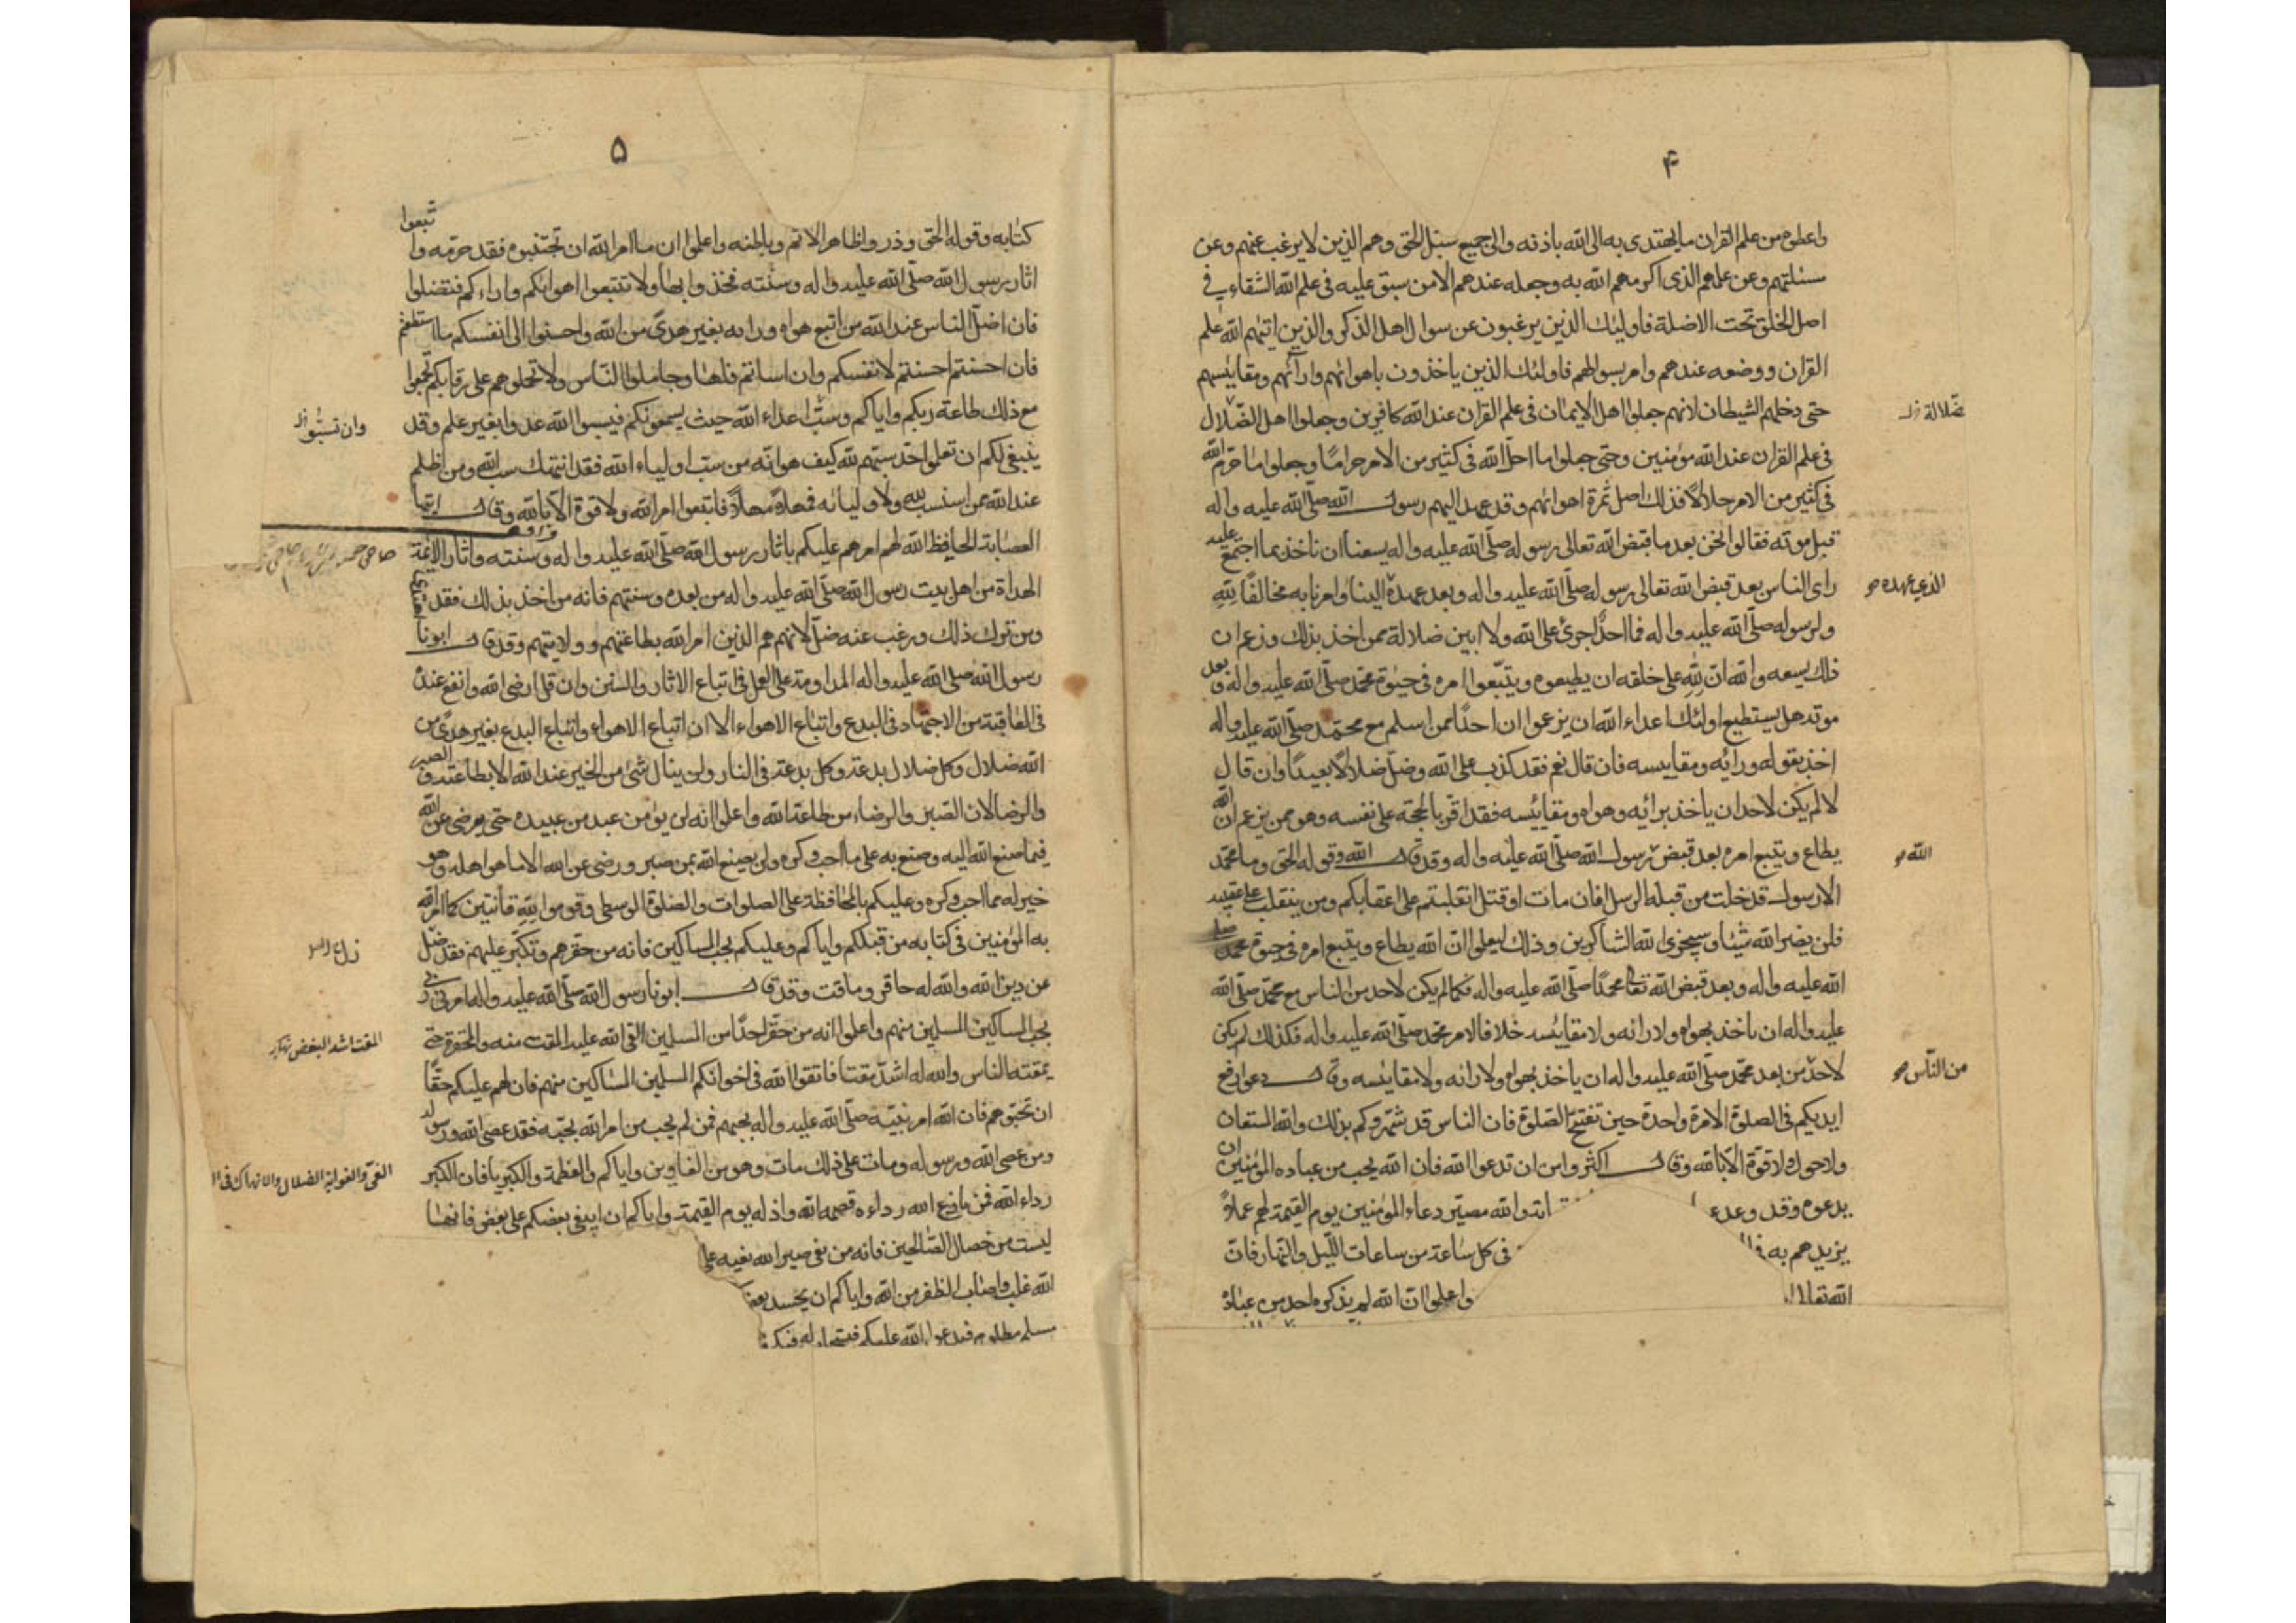 ۴
واعطوه من علم القران ما يهتدى به الى الله باذنه والى جميع سبل الحق وهم الذين لا يرغب عنهم وعن
مسئلتهم وعن علمهم الذى اكرمهم الله به وجعله عندهم الا من سبق عليه فى علم الله الشقاء فى
اصل الخلق تحت الاضلة فاولئك الذين يرغبون عن سوال اهل الذكر والذين اتيهم الله علم
القران ووضعه عندهم وامر بسوالهم فاولئك الذين ياخذون باهوائهم وارائهم ومقاييسهم
حتى دخلهم الشيطان لانهم جعلوا اهل الايمان فى علم القران عند الله كافرين وجعلوا اهل الضلال
ضلالة
فى علم القران عند الله مؤمنين وحتى جعلوا ما احل الله فى كثير من الامر حراما وجعلوا ما حرم الله
فى كثير من الامر حلالا فذلك اصل ثمرة اهوائهم وقد عهد اليهم رسول الله صلى الله عليه واله
قبل موته فقالوا نحن بعد ما قبض الله تعالى رسوله صلى الله عليه واله يسعنا ان ناخذ بما اجتمع عليه
راى الناس بعد قبض الله تعالى رسوله صلى الله عليه واله وبعد عهده الينا وامرنا به مخالفا لله
الذى عهده
ولرسوله صلى الله عليه واله فما احد اجرئ على الله ولا ابين ضلالة ممن اخذ بذلك وزعم ان
ذلك يسعه والله ان لله على خلقه ان يطيعوه ويتبعوا امره فى حيوة محمد صلى الله عليه واله وبعد
موته هل يستطيع اولئك اعداء الله ان يزعموا ان احدا ممن اسلم مع محمد صلى الله عليه واله
اخذ بقوله ورايه ومقاييسه فان قال نعم فقد كذب على الله وضل ضلالا بعيدا وان قال
لا لم يكن لاحد ان ياخذ برائه وهواه ومقائيسه فقد اقر بالحجة على نفسه وهو ممن يزعم ان الله
يطاع ويتبع امره بعد قبض رسول الله صلى الله عليه واله وقد قال الله وقوله الحق وما محمد
الله
الا رسول قد خلت من قبله الرسل افان مات او قتل انقلبتم على اعقابكم ومن ينقلب على عقبيه
فلن يضر الله شيئا وسيجزى الله الشاكرين وذلك ليعلموا ان الله يطاع ويتبع امره فى حيوة محمد صلى
الله عليه واله وبعد قبض الله تعالى محمدا صلى الله عليه واله فكما لم يكن لاحد من الناس مع محمد صلى الله
عليه واله ان ياخذ بهواه ولا رائه ولا مقايئسه خلافا لامر محمد صلى الله عليه واله فكذلك لم يكن
لاحد من بعد محمد صلى الله عليه واله ان ياخذ بهواه ولا رائه ولا مقايئسه وقال دعوا رفع
من الناس
ايديكم فى الصلوة الا مرة واحدة حين تفتتح الصلوة فان الناس قد شهروكم بذلك والله المستعان
ولا حول ولا قوة الا بالله وقال اكثروا من ان تدعوا الله فان الله يحب من عباده المؤمنين ان
يدعوه وقد وعد والله مصير دعاء المؤمنين يوم القيمة لهم عملا
يزيدهم به فى كل ساعة من ساعات الليل والنهار فان
الله تعالى واعلموا ان الله لم يذكره احد من عباده
۵
كتابه وقوله الحق وذروا ظاهر الاثم وباطنه واعلموا ان ما امر الله ان تجتنبوه فقد حرمه واتبعوا
اثار رسول الله صلى الله عليه واله وسنته فخذوا بها ولا تتبعوا اهوائكم وارائكم فتضلوا
فان اضل الناس عند الله من اتبع هواه ورايه بغير هدى من الله واحسنوا الى انفسكم ما استطعتم
فان احسنتم احسنتم لانفسكم وان اساتم فلها وجاملوا الناس ولا تحملوهم على رقابكم تجمعوا
مع ذلك طاعة ربكم واياكم وسب اعداء الله حيث يسمعونكم فيسبوا الله عدوا بغير علم وقد
وان تسبوا
ينبغى لكم ان تعلموا حد سبهم لله كيف هو انه من سب اولياء الله فقد انتهك سب الله ومن اظلم
عند الله ممن استسب لله ولاوليائه فمهلا مهلا فاتبعوا امر الله ولا قوة الا بالله وقال ايتها
العصابة الحافظ الله لهم امرهم عليكم باثار رسول الله صلى الله عليه واله وسنته واثار الائمة
الهداة من اهل بيت رسول الله صلى الله عليه واله من بعده وسنتهم فانه من اخذ بذلك فقد اهتدى
ومن ترك ذلك ورغب عنه ضل لانهم هم الذين امر الله بطاعتهم وولايتهم وقد قال ابونا
رسول الله صلى الله عليه واله المداومة على العمل فى اتباع الاثار والسنن وان قل ارضى لله وانفع عنده
فى العاقبة من الاجتهاد فى البدع واتباع الاهواء الا ان اتباع الاهواء واتباع البدع بغير هدى من
الله ضلال وكل ضلال بدعة وكل بدعة فى النار ولن ينال شئ من الخير عند الله الا بطاعته والصبر
والرضا لان الصبر والرضاء من طاعة الله واعلموا انه لن يؤمن عبد من عبيده حتى يرضى عن الله
فيما صنع الله اليه وصنع به على ما احب وكره ولن يصنع الله بمن صبر ورضى عن الله الا ما هو اهله وهو
خير له مما احب وكره وعليكم بالمحافظة على الصلوات والصلوة الوسطى وقوموا لله قانتين كما امر الله
به المؤمنين فى كتابه من قبلكم واياكم وعليكم بحب المساكين فانه من حقرهم وتكبر عليهم فقد ضل
عن دين الله والله له حاقر وماقت وقد قال ابونا رسول الله صلى الله عليه واله امرنى ربى
بحب المساكين المسلمين منهم واعلموا انه من حقر احدا من المسلمين القى الله عليه المقت منه والمحقرة حتى
المقت اشد البغض نهاية
يمقته الناس والله له اشد مقتا فاتقوا الله فى اخوانكم المسلمين المساكين منهم فان لهم عليكم حقا
ان تحبوهم فان الله امر نبيه صلى الله عليه واله بحبهم فمن لم يحب من امر الله بحبه فقد عصى الله ورسوله
ومن عصى الله ورسوله ومات على ذلك مات وهو من الغاوين واياكم والعظمة والكبر يا فان الكبر
الغى والغواية الضلال والانهماك فى
رداء الله فمن نازع الله رداءه قصمه الله واذله يوم القيمة واياكم ان يبغى بعضكم على بعض فانها
ليست من خصال الصالحين فانه من بغى صير الله بغيه على
الله غلب واصاب الظفر من الله واياكم ان يحسد بعض
مسلم مظلوم فيدعو الله عليكم فيستجاب له فيكم